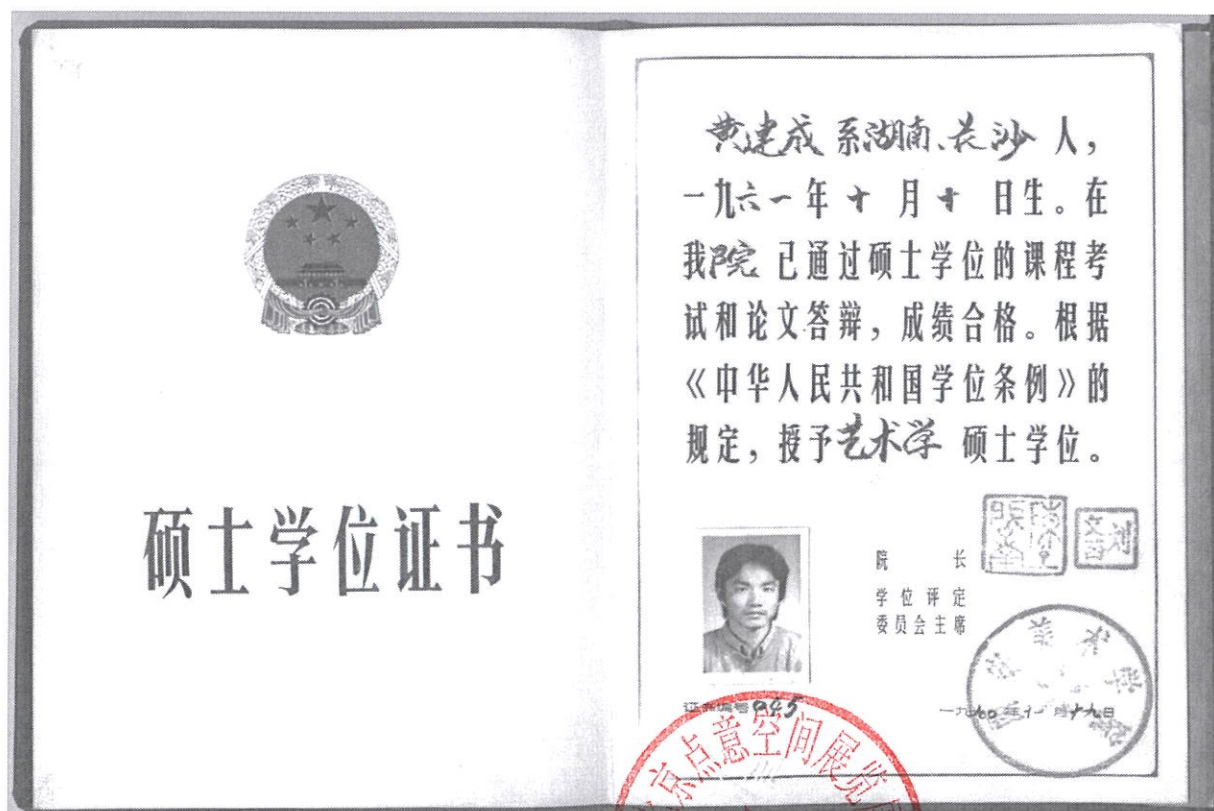 硕士学位证书
黄建成系湖南、长沙人，
一九六一年十月十日生。在
我院已通过硕士学位的课程考
试和论文答辩，成绩合格。根据
《中华人民共和国学位条例》的
规定，授予艺术学硕士学位。
院长
学位评定
委员会主席
刘文西
证书编号 945
一九九〇年十一月十九日
京点意空间展览